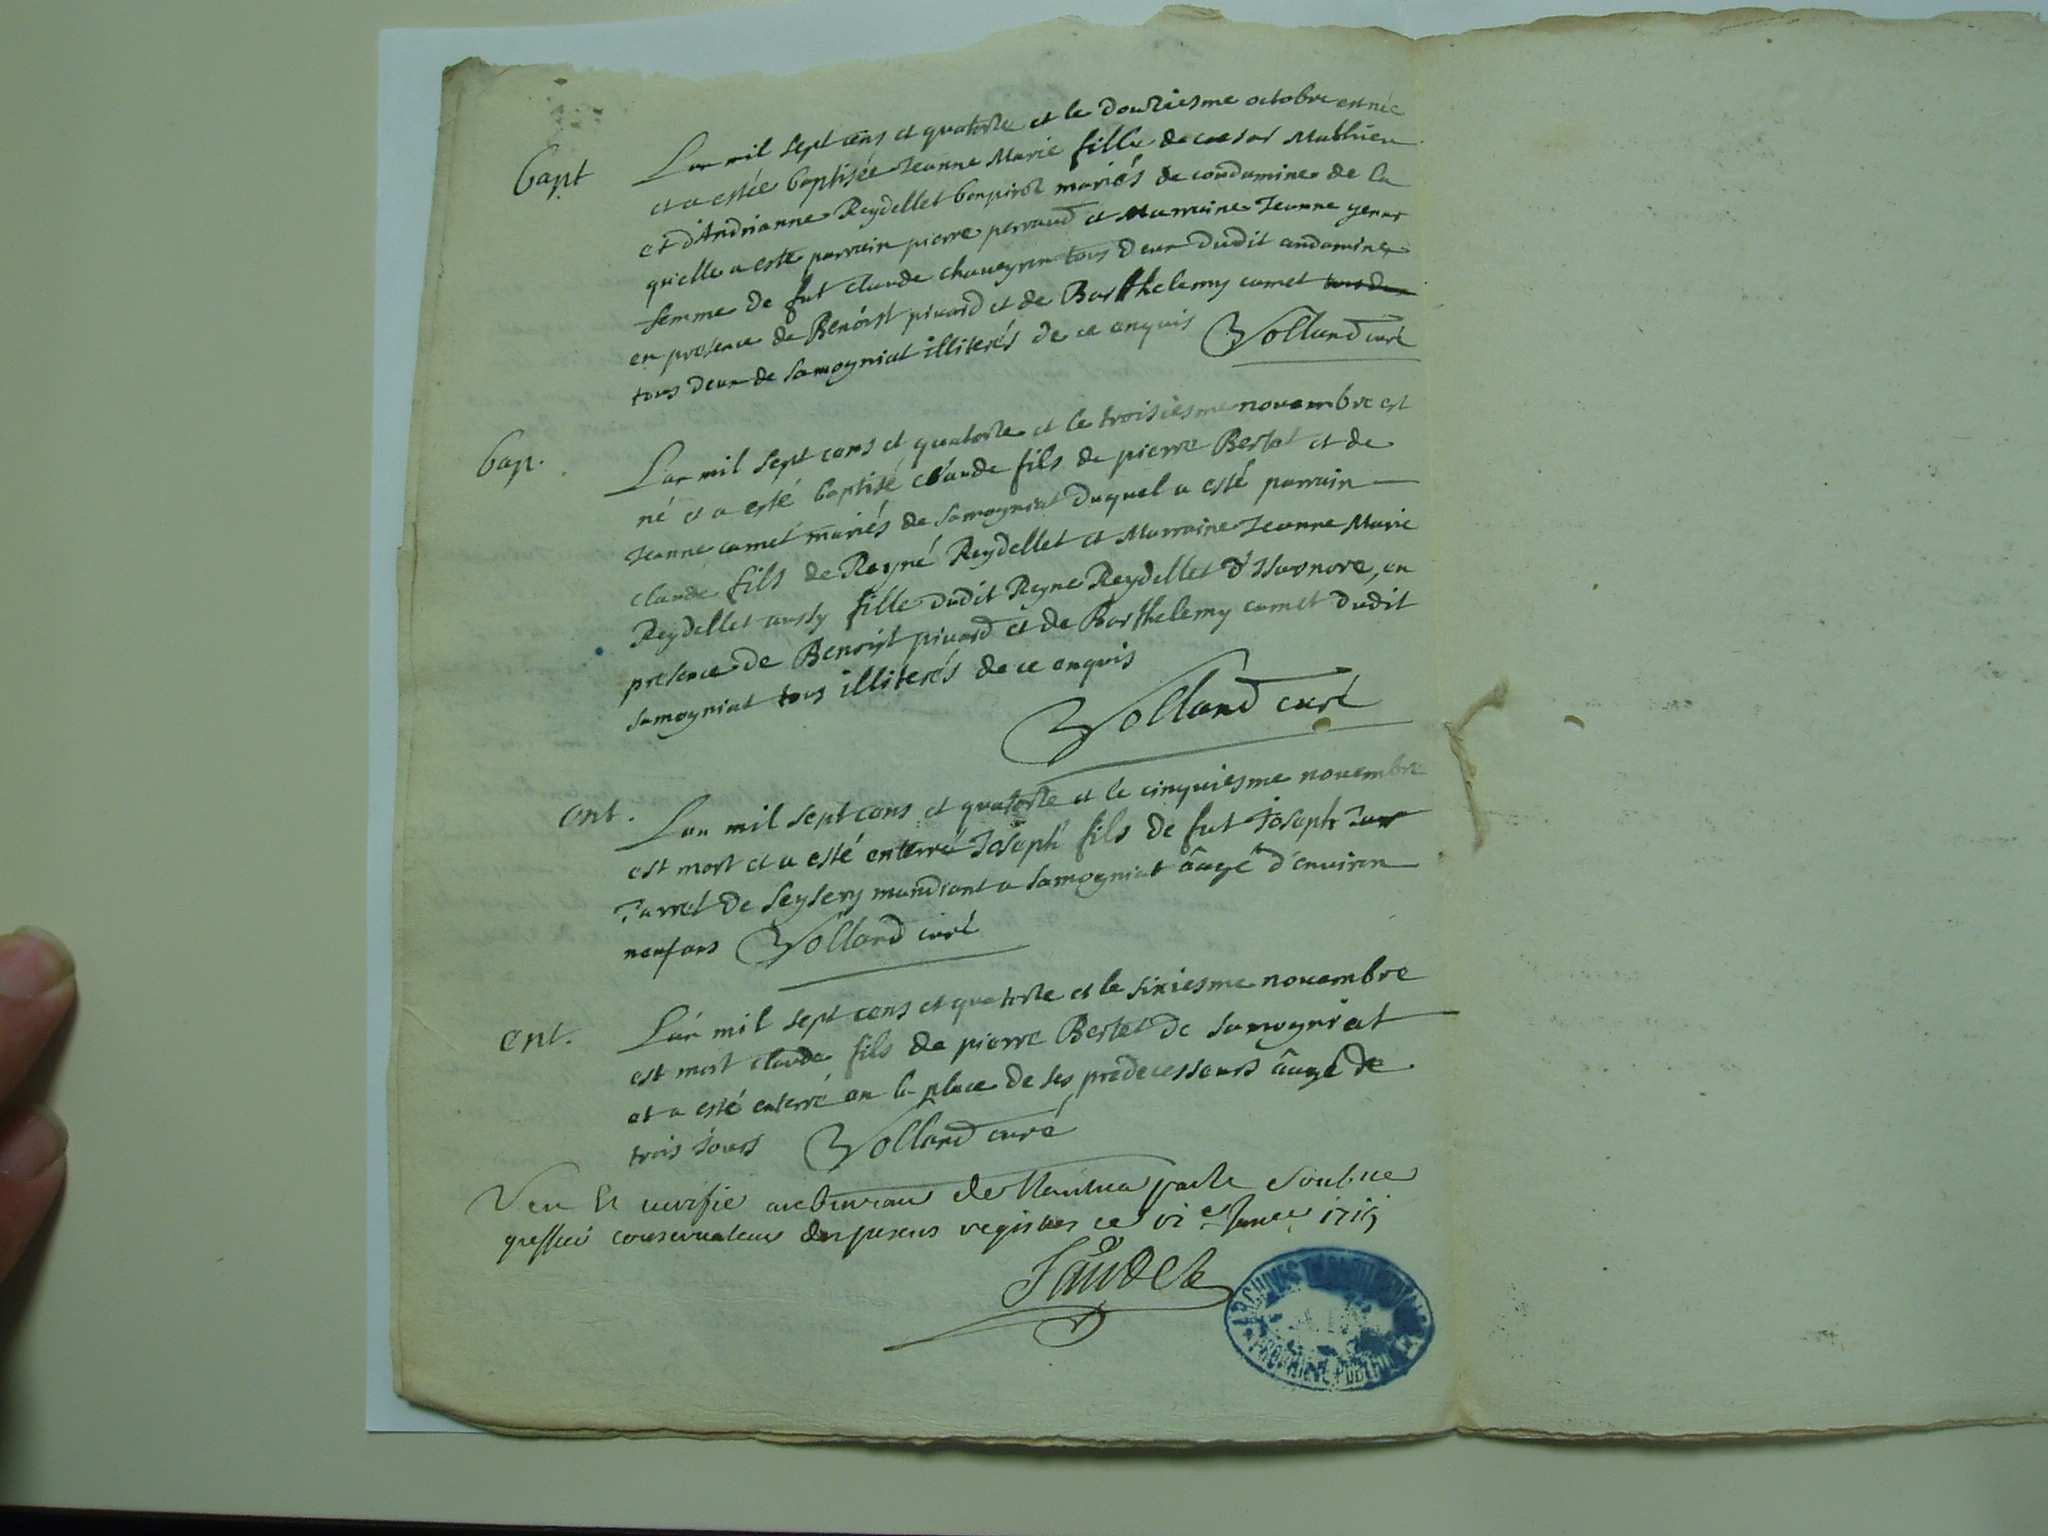 bapt
L'an mil sept cens et quatorze et le douziesme octobre est née
et a estée baptisée Jeanne Marie fille de cesar Mathieu
et d'Andrianne Reydellet bonpirol mariés de condamine de la
quelle a esté parrain pierre perraud et Marraine Jeanne
femme de fut claude tous deux dudit condamine
en presence de Benoist pivard et de Barthelemy camet
tous deux de samogniat illiterés de ce enquis Volland curé
bap.
L'an mil sept cens et quatorze et le troisiesme novembre est
né et a esté baptisé claude fils de pierre Bertet et de
Jeanne camet mariés de samogniat duquel a esté parrain
claude fils de Reyné Reydellet et Marraine Jeanne Marie
Reydellet aussy fille dudit Reyne Reydellet d'Isernore, en
presence de Benoist pivard et de Barthelemy camet dudit
samogniat tous illiterés de ce enquis
Volland curé
ent.
L'an mil sept cens et quatorze et le cinquiesme novembre
est mort et a esté enterré Joseph fils de fut Joseph
de mandiant a samogniat âagé d'environ
neuf ans Volland curé
ent.
L'an mil sept cens et quatorze et le sixiesme novembre
est mort claude fils de pierre Bertet de samogniat
et a esté enterré en la place de ses predecesseurs âagé de
trois jours Volland curé
Veu et verifié au bureau de Nantua par le
greffier conservateur des presens registres ce 1715
ARCHIVES
PROPRIÉTÉ PUBLIQUE